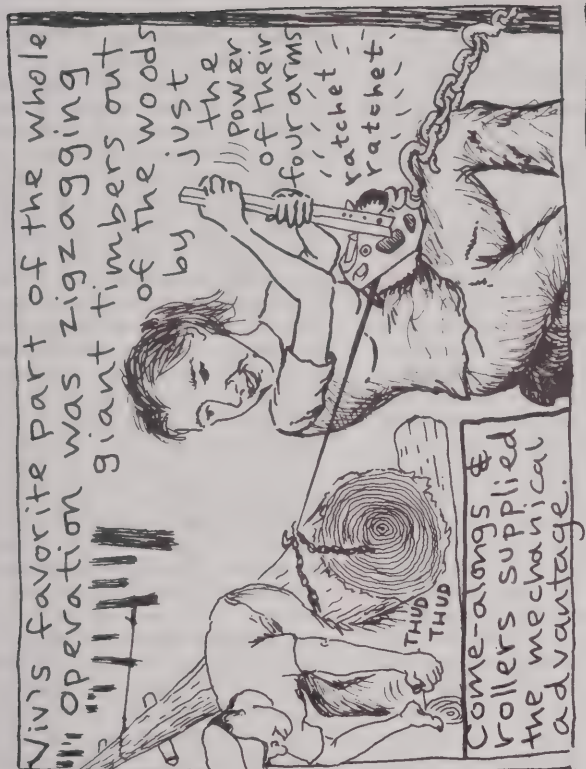 Viv's favorite part of the whole
operation was zigzagging
giant timbers out
of the woods
by just
the
power
of their
four arms
ratchet
ratchet
THUD
THUD
Come-alongs &
rollers supplied
the mechanical
advantage.